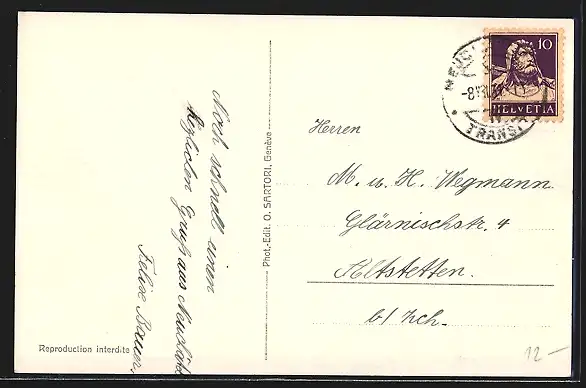 Noch schnell einen
herzlichen Gruss aus Neuchâtel
Felix Bauer.
Reproduction interdite
Phot.-Edit. O. SARTORI, Genève
10
HELVETIA
TRANSIT
Herren
M. u. H. Wegmann
Glärnischstr. 4
Altstetten.
b/ Zch.
12 –